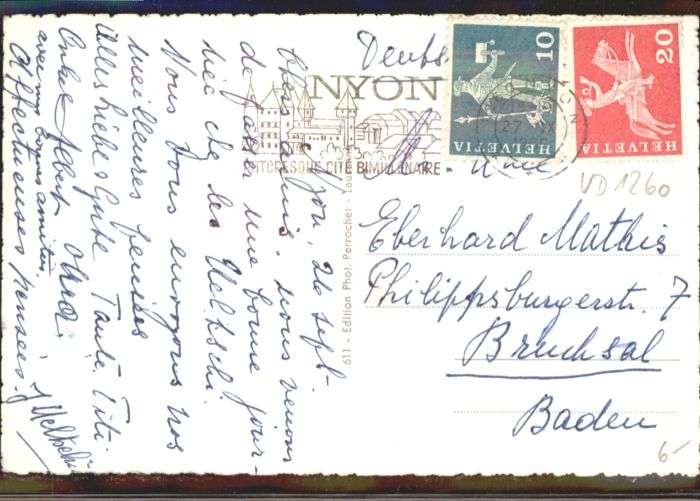 Nyon, 26 sept.
Chers amis, nous venons
de passer une bonne jour-
née chez les Ueltschi.
Nous vous envoyons nos
meilleures pensées
Allerliebste Grüße Tante Titi
Onkel Albert
avec nos bonnes amitiés
Affectueuses pensées.
NYON
PITTORESQUE CITÉ BIMILLÉNAIRE
10
HELVETIA
20
HELVETIA
VD 1260
611 - Edition Phot. Perrochet - Lausanne
Eberhard Mathis
Philippsburgerstr. 7
Bruchsal
Baden
6.-